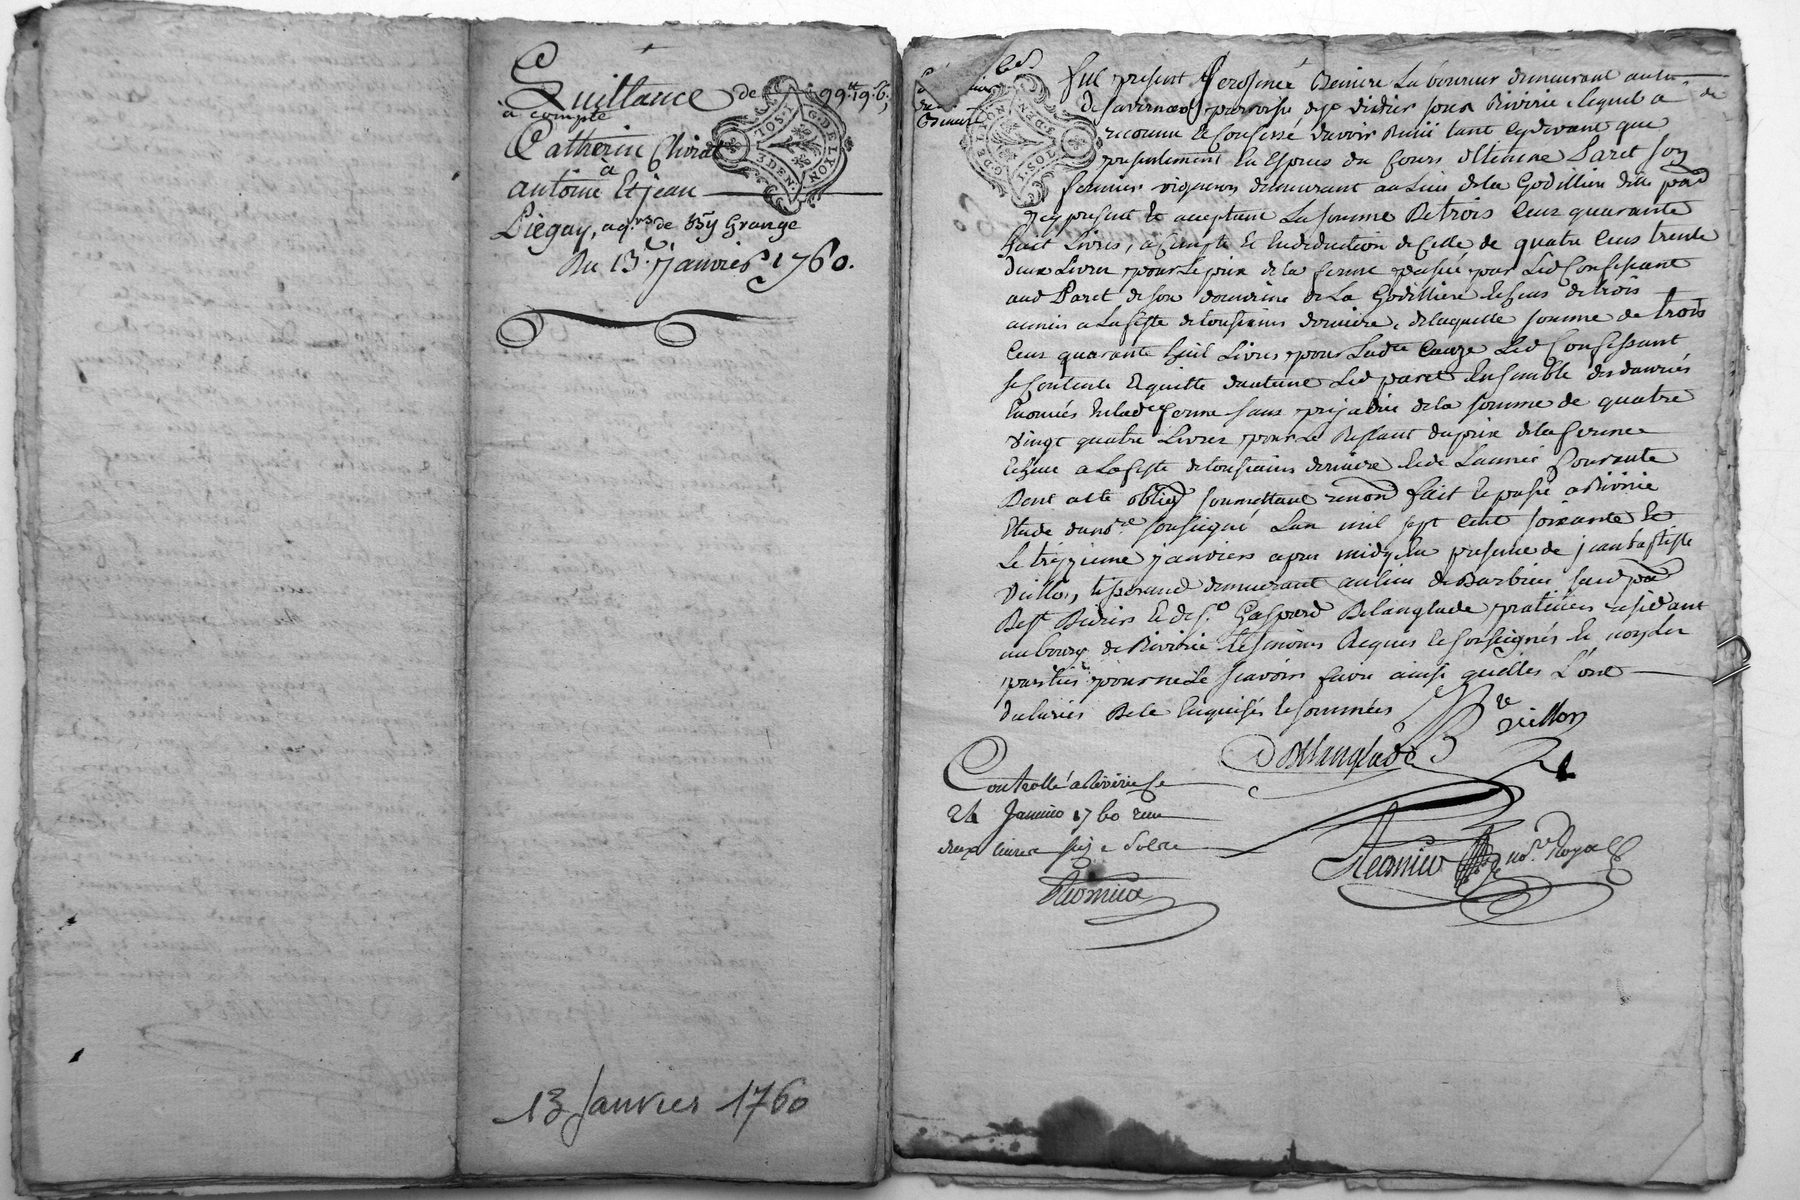 Quittance de 99lt 19s 6d
à compte
Catherin Chirat
à
antoine Et jean
Liegay, aqrs de Vy Grange
Du 13e janvier 1760.
1 SOL
3 DEN.
G. DE LYON
13 Janvier 1760
G. DE LYON
1 SOL
3 DEN.
Fut present demeurant au lieu
de paroisse de st didier sous Rivirie lequel a
reconnu et Confessé davoir Reçu tant cydevant que
presentement En Especes du Cours d'Etienne Paret son
fermier vigneron demeurant au Lieu de la Godilliere dite pard
jcy present et acceptant La somme De trois Cens quarante
huit Livres, a Compte et En deduction de Celle de quatre Cens trente
deux Livres pour Le prix de la ferme passée par Led Confessant
aud Paret de son domaine de La Godilliere Echeus de trois
années a La feste de toussains derniere, de laquelle somme de trois
Cens quarante huit Livres pour Ladte Cauze Led Confessant
se Contente Et quitte dautant Led paret Ensemble des danrées
Enoncées En lade ferme sans prejudice de la somme de quatre
vingt quatre Livres pour Le Restant du prix de la ferme
Echeue a La feste de toussains derniere et de Lannée Courante
Dont acte obligd soumettant renond fait Et passé a Rivirie
Etude du nore soussigné Lan mil sept cent soixante Et
Le treizieme janvier apres midy En presence de jean baptiste
Villon, tisserand demeurant au lieu de Barbieu susd pse
De st Didier Et de sr Gaspard Delanglade praticien residant
au bourg de Rivirie tesmoins Requis Et soussignés Et non les
parties pour ne Le scavoir faire ainsi quelles L'ont
declaré De ce Enquises Et sommées
Villon
Delanglade
Controllé a Riverie le
24 Janvier 1760 reçu
not.re Royal